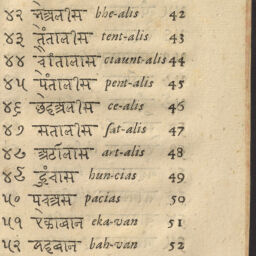 ४२ बेअलीस bhe-alis 42
४३ तेंतालीस tent-alis 43
४४ चौंतालीस ctaunt-alis 44
४५ पेंतालीस pent-alis 45
४६ छेहअलीस ce-alis 46
४७ सतालीस sat-alis 47
४८ अठतालीस art-alis 48
४९ hun-cias 49
५० पचआस pacias 50
५१ ekа-van 51
५२ bah-van 52